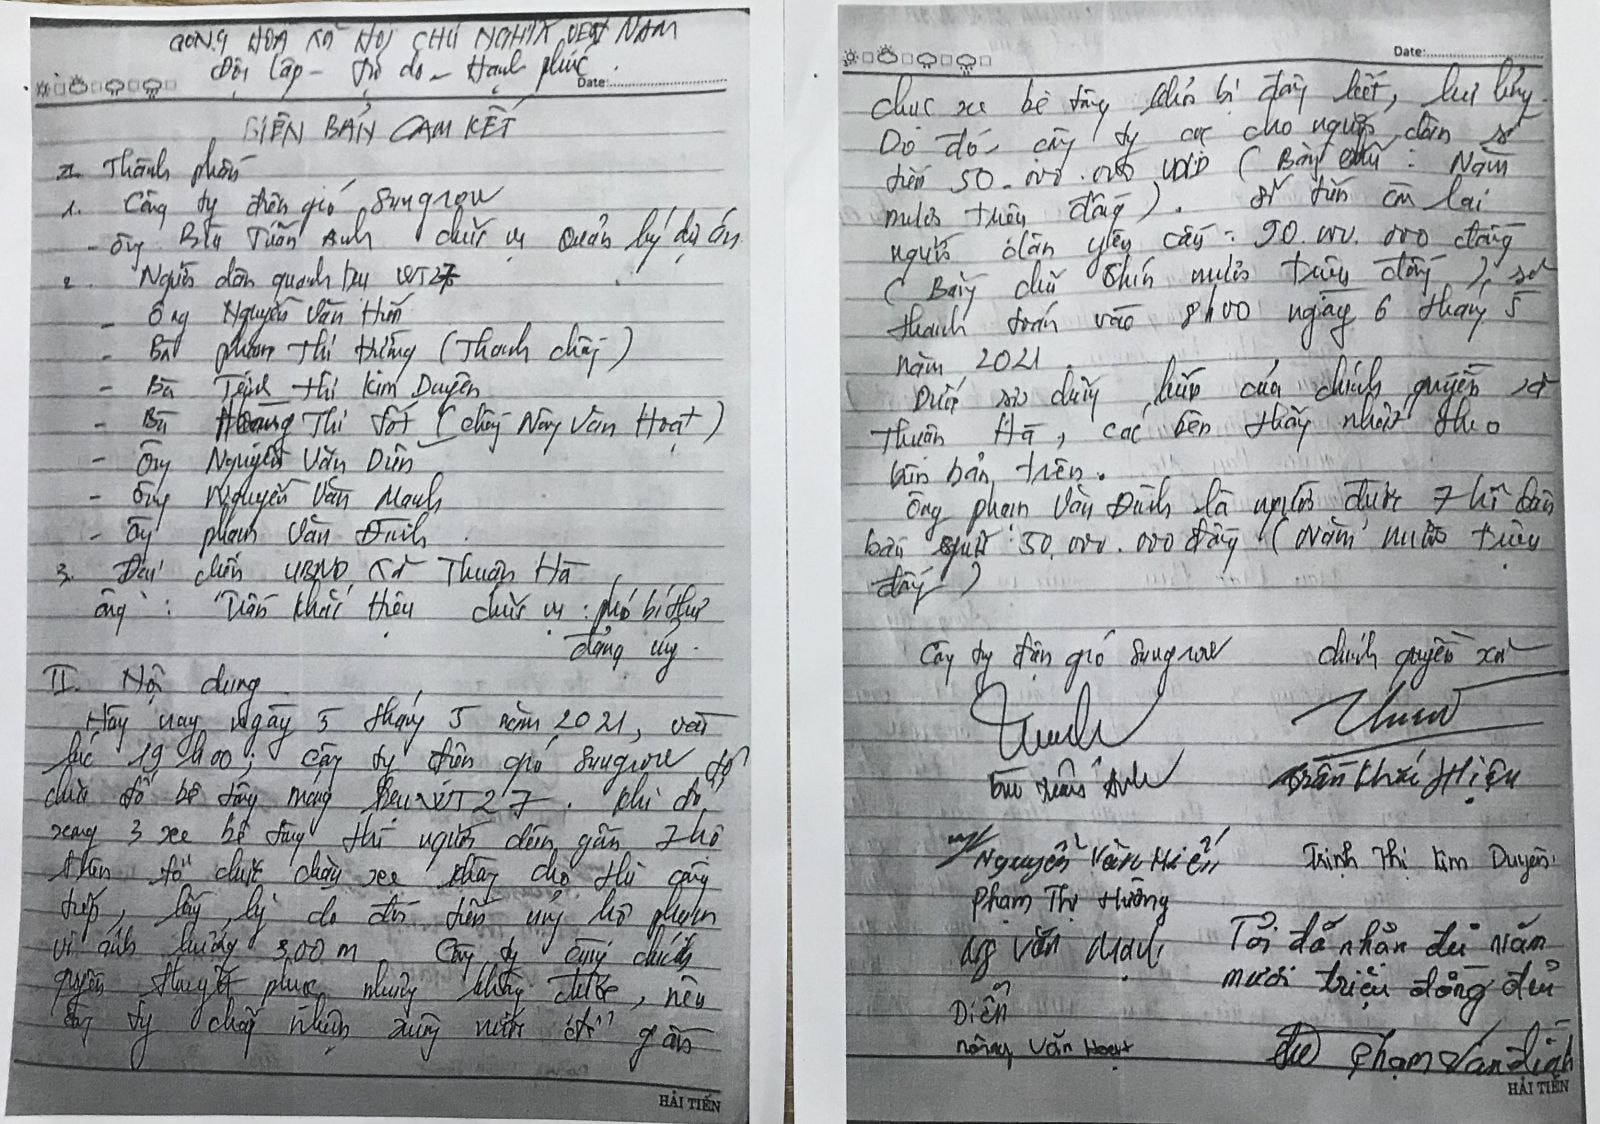 CỘNG HÒA XÃ HỘI CHỦ NGHĨA VIỆT NAM
Độc lập - Tự do - Hạnh phúc
Date:
BIÊN BẢN CAM KẾT
I. Thành phần
1. Công ty điện gió Sungrow
- Ông Bùi Tuấn Anh chức vụ Quản lý dự án
2. Người dân quanh trụ WT27
- Ông Nguyễn Văn Hiến
- Bà Phạm Thị Hường (Thanh chây)
- Bà Trịnh Thị Kim Duyên
- Bà Hoàng Thị Tốt (chồng Nông Văn Hoạt)
- Ông Nguyễn Văn Diễn
- Ông Nguyễn Văn Mạnh
- Ông Phạm Văn Đình
3. Đại diện UBND xã Thuận Hà
Ông: Trần Khắc Hiệu chức vụ: phó bí thư
đảng ủy.
II. Nội dung
Hôm nay ngày 5 tháng 5 năm 2021, vào
lúc 19h00, Công ty điện gió Sungrow có
đổ bê tông móng trụ WT27. Khi đổ
xong 3 xe bê tông thì người dân gần 7 hộ
trên tổ chức chặn xe không cho thi công
tiếp, lấy lý do đòi tiền ủng hộ phạm
vi ảnh hưởng 300m. Công ty cùng chính
quyền thuyết phục nhưng không được, nên
công ty chấp nhận xuống nước vì gần
HẢI TIẾN
Date:
chục xe bê tông khác bị đông kết, hư hỏng.
Do đó công ty cọc cho người dân số
tiền 50.000.000 VNĐ (Bằng chữ: Năm
mươi triệu đồng). số tiền còn lại
người dân yêu cầu: 90.000.000 đồng
(Bằng chữ Chín mươi triệu đồng), sẽ
thanh toán vào 8h00 ngày 6 tháng 5
năm 2021.
Dưới sự chứng kiến của chính quyền xã
Thuận Hà, các bên thống nhất theo
biên bản trên.
Ông Phạm Văn Đình là người được 7 hộ dân
bầu giữ: 50.000.000 đồng (Năm mươi triệu
đồng)
Công ty điện gió Sungrow chính quyền xã
Bùi Tuấn Anh Trần Khắc Hiệu
Nguyễn Văn Hiến Trịnh Thị Kim Duyên
Phạm Thị Hường
Ng Văn Mạnh Tôi đã nhận đủ Năm
mươi triệu đồng đủ
Diễn
Nông Văn Hoạt Phạm Văn Đình
HẢI TIẾN